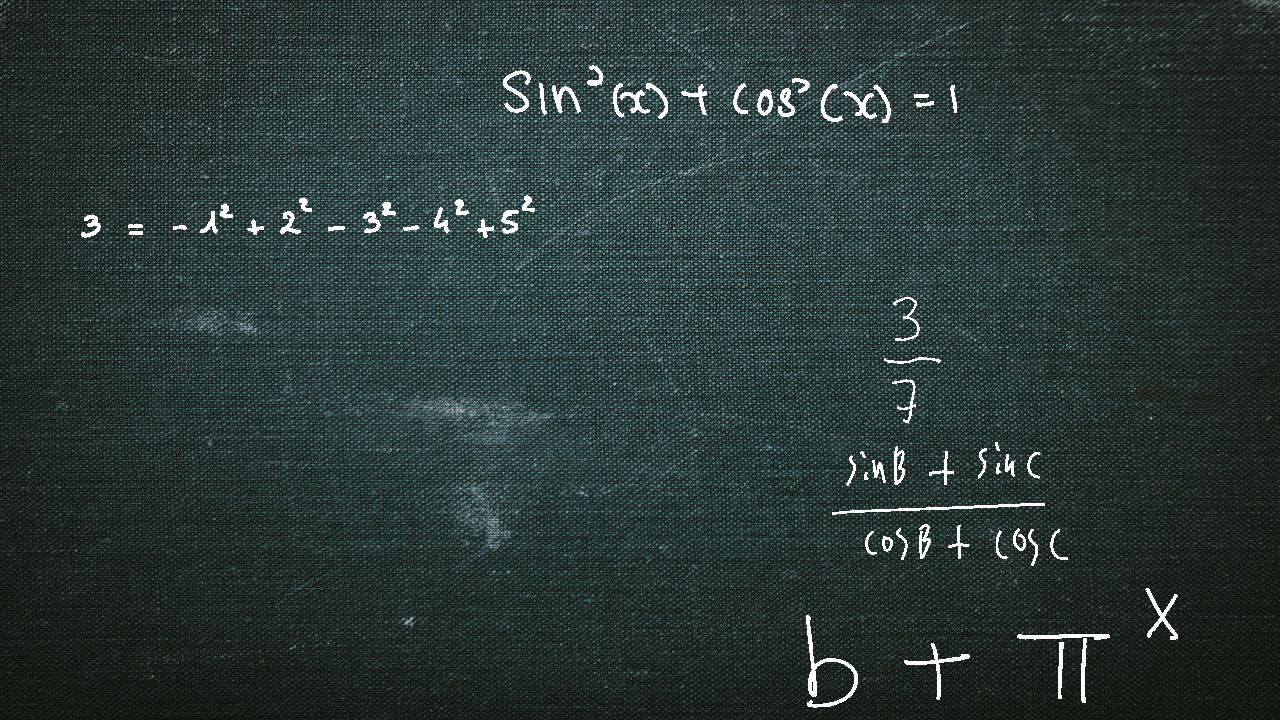 Sin²(x) + cos²(x) = 1
3 = -1² + 2² - 3² - 4² + 5²
3
7
sinB + sinC
cosB + cosC
b + π^x